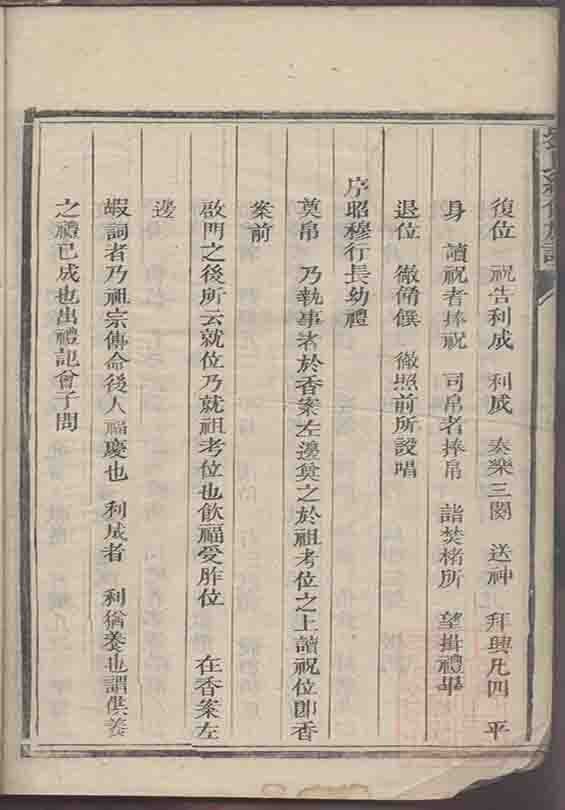 復位 祝告利成 利成 奏樂三闋 送神 拜興凡四 平
身 讀祝者捧祝 司帛者捧帛 詣焚楮所 望揖禮畢
退位 徹脩饌 徹照前所設唱
序昭穆行長幼禮
奠帛 乃執事者於香案左邊奠之於祖考位之上讀祝位即香
案前
啟門之後所云就位乃就祖考位也飲福受胙位 在香案左
邊
嘏詞者乃祖宗傳命後人福慶也 利成者 利猶養也謂供養
之禮已成也出禮記曾子問